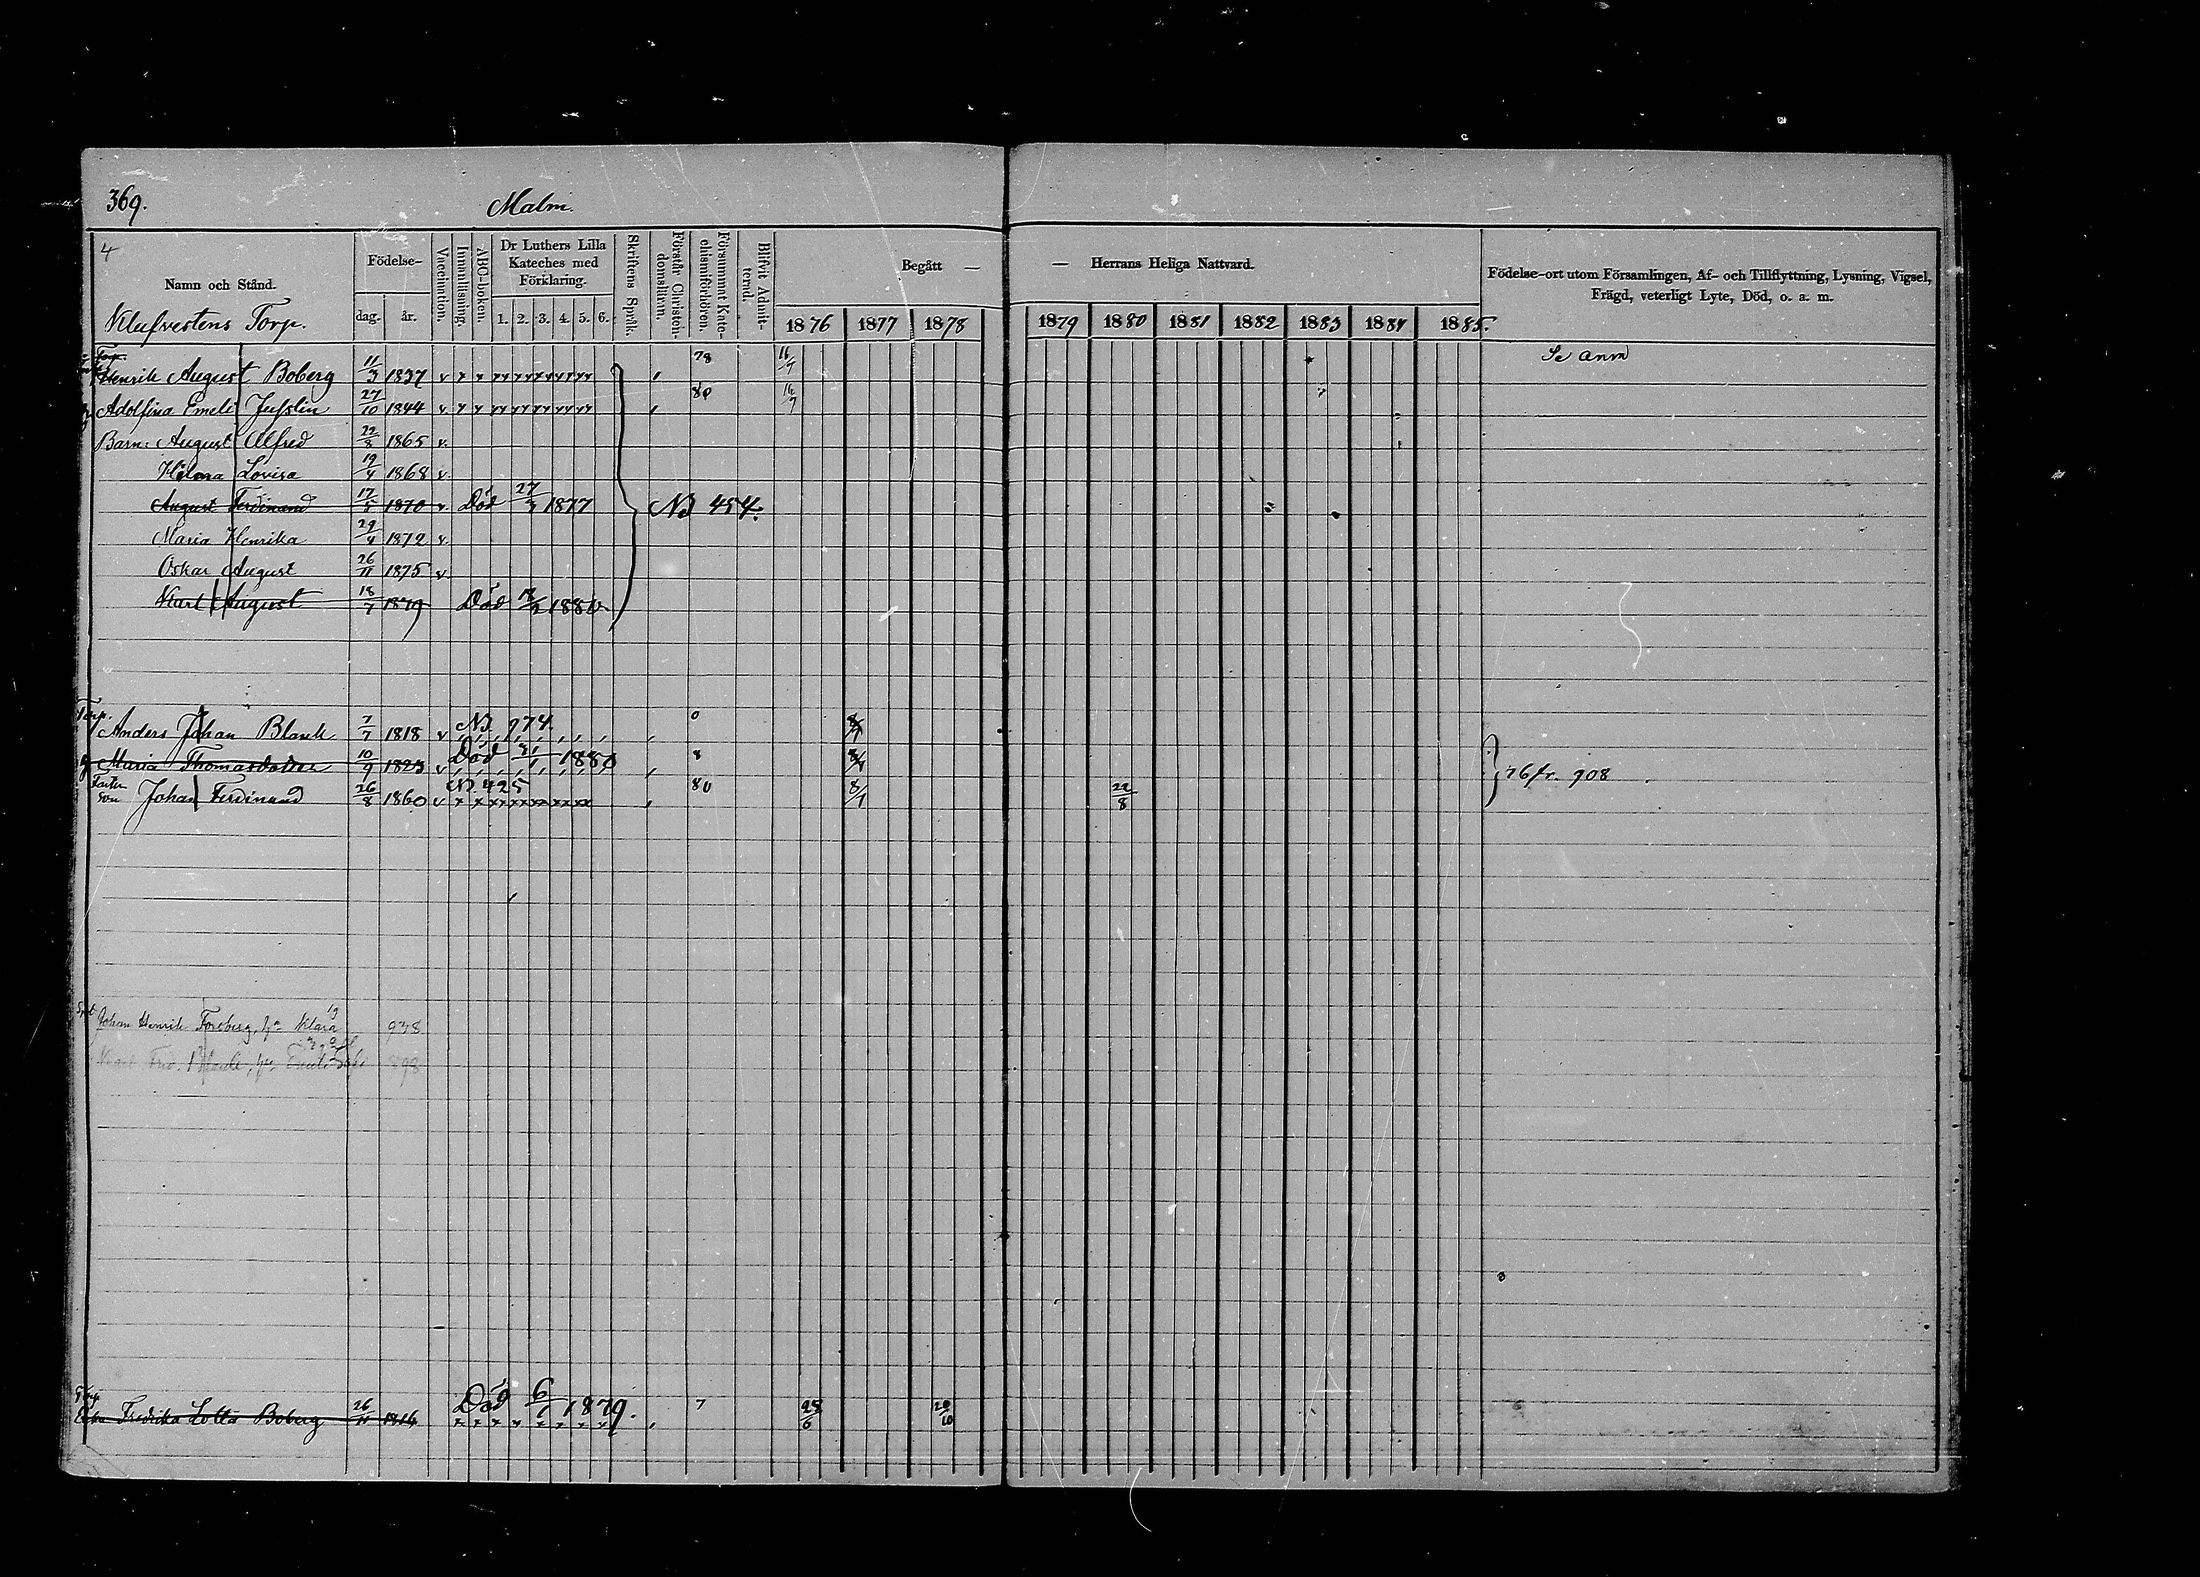 369.
Malm.
4
Namn och Stånd.
Klufvestens Torp.
Födelse-
dag. år.
Vaccination.
Innanläsning.
ABC-boken.
Dr Luthers Lilla
Kateches med
Förklaring.
1. 2. 3. 4. 5. 6.
Skriftens Språk.
Förstår Christen-
domsläran.
Försummat Kate-
chismiförhören.
Blifvit Admit-
terad.
Begått —
1876 1877 1878
— Herrans Heliga Nattvard.
1879 1880 1881 1882 1883 1884 1885.
Födelse-ort utom Församlingen, Af- och Tillflyttning, Lysning, Vigsel,
Frägd, veterligt Lyte, Död, o. a. m.
Torp.
Henrik August Boberg 11/3 1837 v 78 16/7 Se anm
Adolfina Emeli 27/10 1844 v 80 16/7
Barn: August Alfred 22/8 1865 v.
Hilma Lovisa 19/4 1868 v.
August Ferdinand 17/5 1870 v. Död 27/3 1877 N3 454.
Maria Henrika 29/4 1872 v.
Oskar August 26/11 1875 v.
Karl August 18/7 1879 Död 18/2 1880
Torp.
Anders Johan Blank 7/7 1818 v N3 974. 0 8/1
Maria Thomasdotter 10/9 1823 v Död 31/1 1880 8 8/1 76 fr. 908
son Johan Ferdinand 26/8 1860 v N 425 80 8/1 22/8
Johan Henrik Forsberg, Klara 938
898
Fredrika Lotta Boberg 26/11 1814 Död 6/1 1879. 7 28/6 20/10